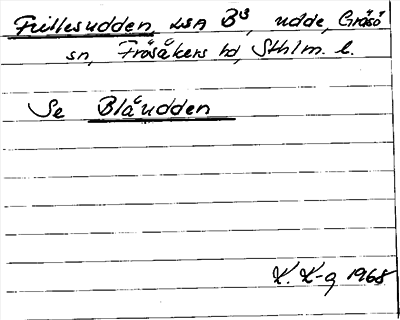 Frillesudden, LSA B3, udde, Gräsö
sn, Frösåkers hd, Sthlm. l.
Se Blåudden
K. K-g 1968